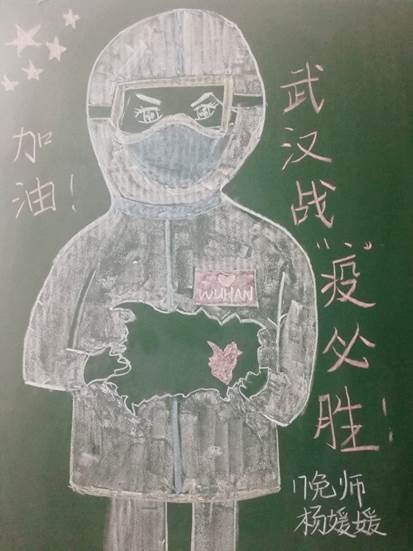 加油！
武汉战“疫”必胜！
WUHAN
师
杨媛媛